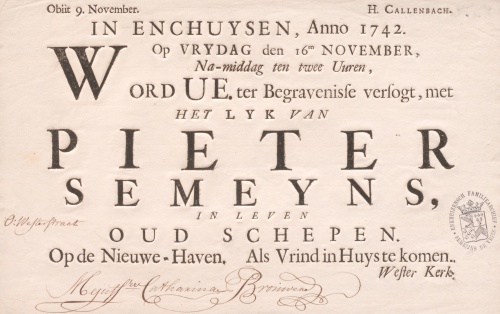 Obiit 9. November. H. CALLENBACH.
IN ENCHUYSEN, Anno 1742.
Op VRYDAG den 16en NOVEMBER,
Na-middag ten twee Uuren,
WORD UE. ter Begravenisse versogt, met
HET LYK VAN
PIETER
SEMEYNS,
IN LEVEN
OUD SCHEPEN.
Op de Nieuwe-Haven, Als Vrind in Huys te komen.
Wester Kerk.
Catharina